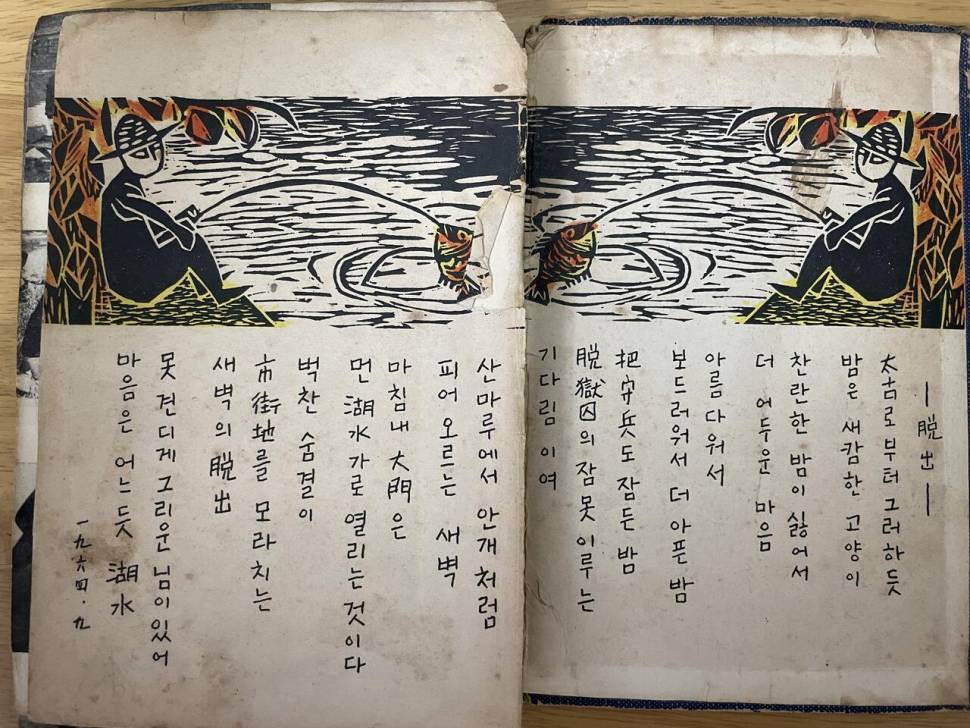 —脫出—
太古로부터 그러하듯
밤은 새캄한 고양이
찬란한 밤이 싫어서
더 어두운 마음
아름다워서
보드러워서 더 아픈 밤
把守兵도 잠든 밤
脫獄囚의 잠 못 이루는
기다림이여
산마루에서 안개처럼
피어 오르는 새벽
마침내 大門은
먼 湖水가로 열리는 것이다
벅찬 숨결이
市街地를 모라치는
새벽의 脫出
못 견디게 그리운 님이 있어
마음은 어느듯 湖水
一九六四·九